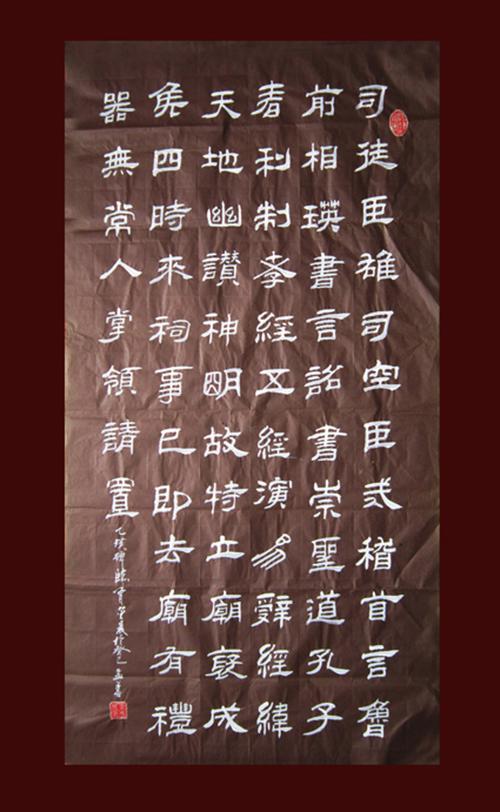 司徒臣雄司空臣戒稽首言魯
前相瑛書言詔書崇聖道孔子
春秋制孝經五經演易辭經緯
天地幽讚神明故特立廟褒成
侯四時來祠事已即去廟有禮
器無常人掌領請置
乙瑛碑臨